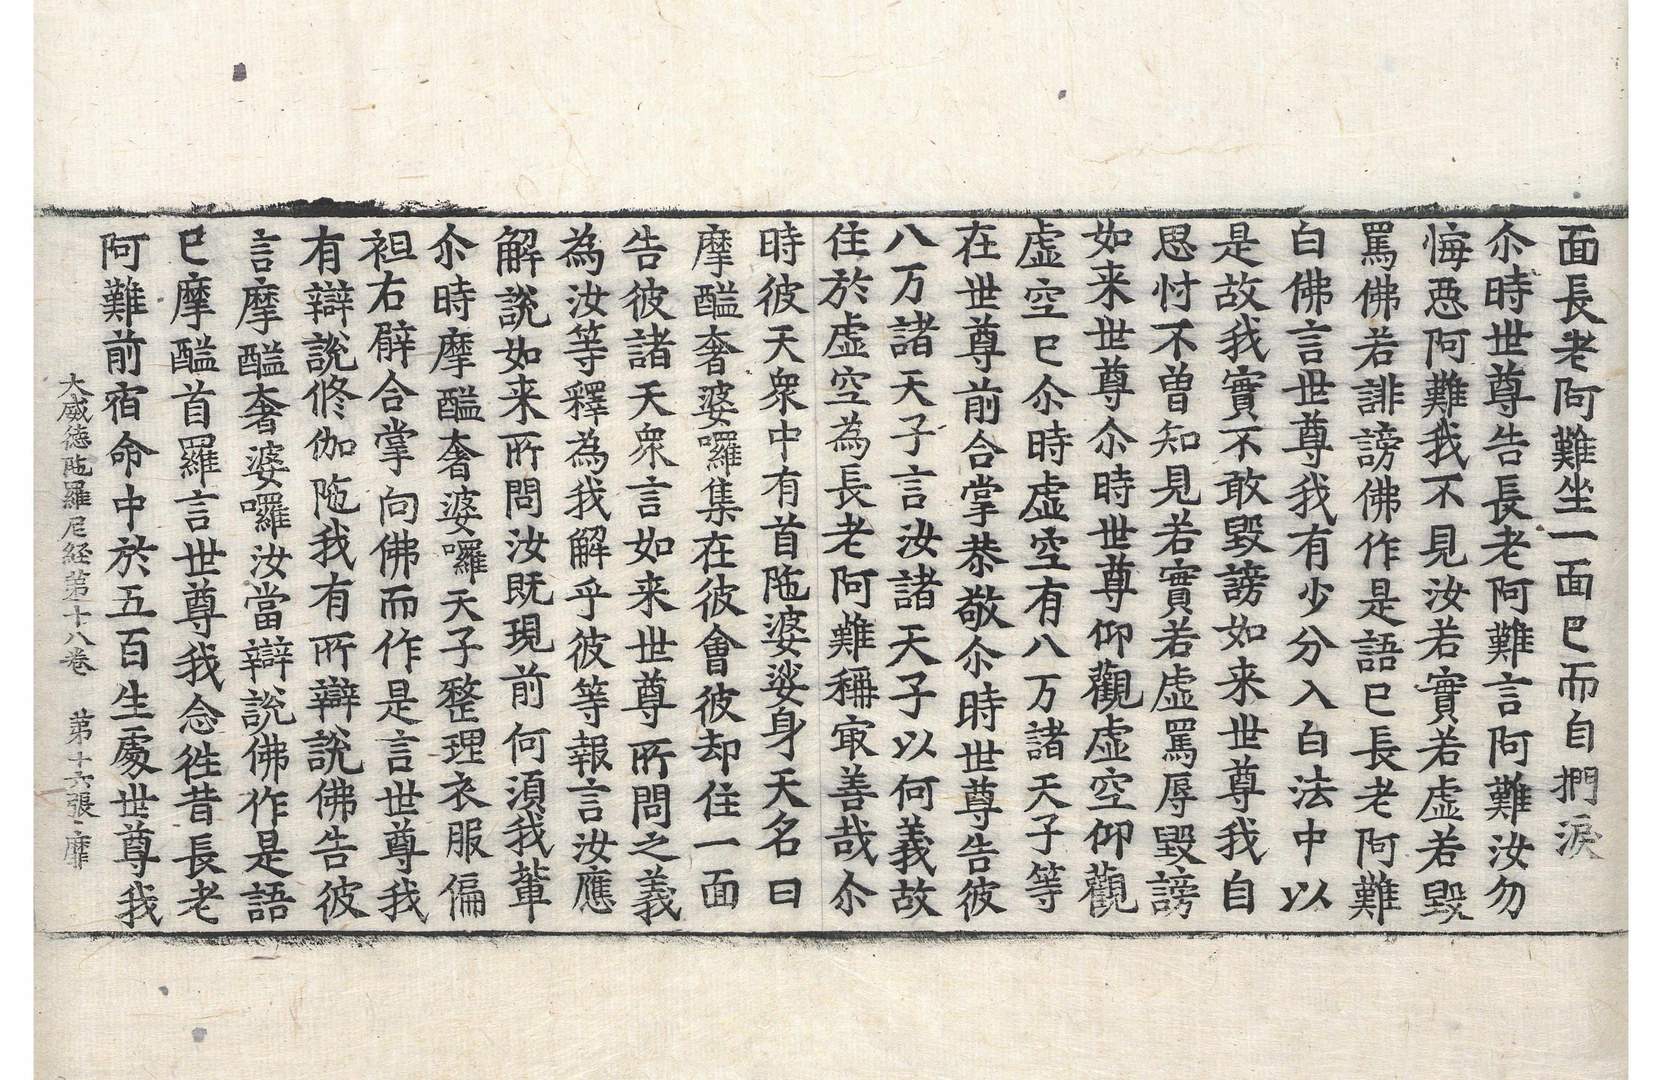 面長老阿難坐一面已而自捫淚
尒時世尊告長老阿難言阿難汝勿
悔恧阿難我不見汝若實若虛若毀
罵佛若誹謗佛作是語已長老阿難
白佛言世尊我有少分入白法中以
是故我實不敢毀謗如来世尊我自
思忖不曾知見若實若虛罵辱毀謗
如来世尊尒時世尊仰觀虛空仰觀
虛空已尒時虛空有八万諸天子等
在世尊前合掌恭敬尒時世尊告彼
八万諸天子言汝諸天子以何義故
住於虛空為長老阿難稱㝡善哉尒
時彼天眾中有首陁婆娑身天名曰
摩醯奢婆囉集在彼會彼却住一面
告彼諸天眾言如来世尊所問之義
為汝等釋為我解乎彼等報言汝應
解說如来所問汝既現前何須我輩
尒時摩醯奢婆囉天子整理衣服偏
袒右臂合掌向佛而作是言世尊我
有辯說修伽陁我有所辯說佛告彼
言摩醯奢婆囉汝當辯說佛作是語
已摩醯首羅言世尊我念徃昔長老
阿難前宿命中於五百生處世尊我
大威徳陁羅尼経苐十八巻　苐十六張　靡